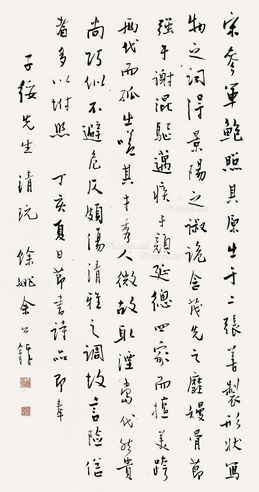 宋参軍鮑照其原生于二張善製形狀寫
物之詞得景陽之諔詭含茂先之靡嫚骨節
强于謝混驅邁疾于顏延總四家而擅美跨
兩代而孤出嗟其才秀人微故取湮當代然貴
尚巧似不避危仄頗傷清雅之調故言險俗
者多以附照 丁亥夏日節書詩品即奉
子綬先生清玩 餘姚余公